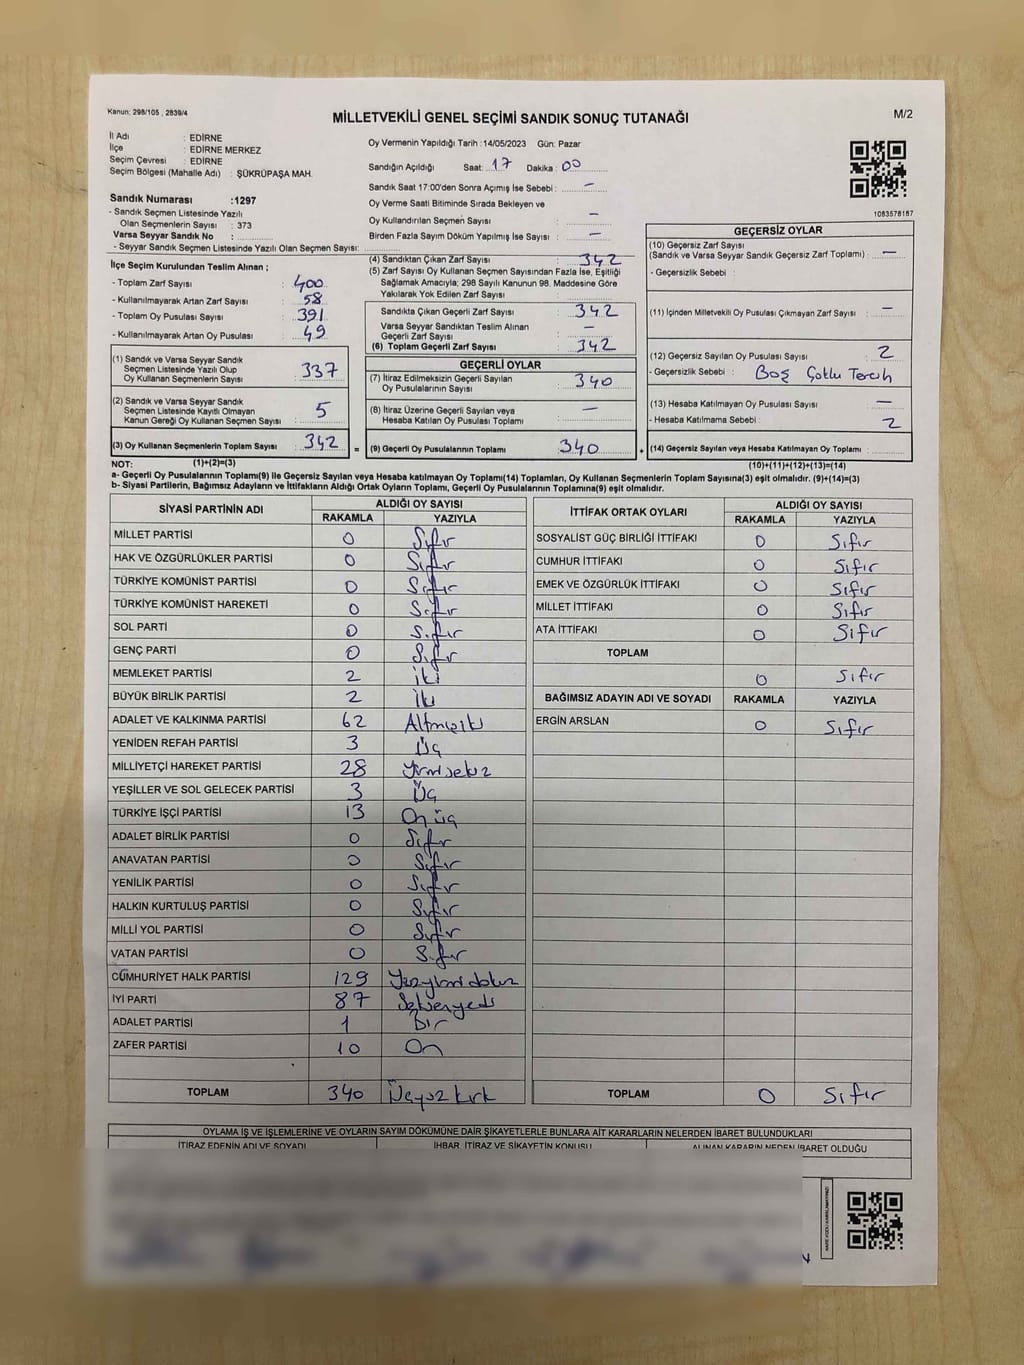 Kanun: 298/105 , 2839/4
MİLLETVEKİLİ GENEL SEÇİMİ SANDIK SONUÇ TUTANAĞI
M/2
İl Adı : EDİRNE
İlçe : EDİRNE MERKEZ
Seçim Çevresi : EDİRNE
Seçim Bölgesi (Mahalle Adı) : ŞÜKRÜPAŞA MAH.
Oy Vermenin Yapıldığı Tarih :14/05/2023 Gün: Pazar
Sandığın Açıldığı Saat: 17 Dakika : 00
Sandık Saat 17:00'den Sonra Açımış İse Sebebi : –
Oy Verme Saati Bitiminde Sırada Bekleyen ve
Oy Kullandırılan Seçmen Sayısı –
Birden Fazla Sayım Döküm Yapılmış İse Sayısı –
1083578187
Sandık Numarası :1297
- Sandık Seçmen Listesinde Yazılı
Olan Seçmenlerin Sayısı : 373
Varsa Seyyar Sandık No :
- Seyyar Sandık Seçmen Listesinde Yazılı Olan Seçmen Sayısı:
İlçe Seçim Kurulundan Teslim Alınan ;
- Toplam Zarf Sayısı : 400
- Kullanılmayarak Artan Zarf Sayısı : 58
- Toplam Oy Pusulası Sayısı : 391
- Kullanılmayarak Artan Oy Pusulası : 49
(1) Sandık ve Varsa Seyyar Sandık
Seçmen Listesinde Yazılı Olup
Oy Kullanan Seçmenlerin Sayısı 337
(2) Sandık ve Varsa Seyyar Sandık
Seçmen Listesinde Kayıtlı Olmayan
Kanun Gereği Oy Kullanan Seçmen Sayısı : 5
(3) Oy Kullanan Seçmenlerin Toplam Sayısı 342 =
(4) Sandıktan Çıkan Zarf Sayısı : 342
(5) Zarf Sayısı Oy Kullanan Seçmen Sayısından Fazla İse, Eşitliği
Sağlamak Amacıyla; 298 Sayılı Kanunun 98. Maddesine Göre
Yakılarak Yok Edilen Zarf Sayısı :
Sandıkta Çıkan Geçerli Zarf Sayısı : 342
Varsa Seyyar Sandıktan Teslim Alınan
Geçerli Zarf Sayısı : –
(6) Toplam Geçerli Zarf Sayısı : 342
GEÇERLİ OYLAR
(7) İtiraz Edilmeksizin Geçerli Sayılan
Oy Pusulalarının Sayısı : 340
(8) İtiraz Üzerine Geçerli Sayılan veya
Hesaba Katılan Oy Pusulası Toplamı –
(9) Geçerli Oy Pusulalarının Toplamı : 340 +
GEÇERSİZ OYLAR
(10) Geçersiz Zarf Sayısı
(Sandık ve Varsa Seyyar Sandık Geçersiz Zarf Toplamı) : –
- Geçersizlik Sebebi :
(11) İçinden Milletvekili Oy Pusulası Çıkmayan Zarf Sayısı : –
(12) Geçersiz Sayılan Oy Pusulası Sayısı : 2
- Geçersizlik Sebebi : Boş Çoklu Tercih
(13) Hesaba Katılmayan Oy Pusulası Sayısı : –
- Hesaba Katılmama Sebebi : 2
(14) Geçersiz Sayılan veya Hesaba Katılmayan Oy Toplamı :
NOT: (1)+(2)=(3) (10)+(11)+(12)+(13)=(14)
a- Geçerli Oy Pusulalarının Toplamı(9) ile Geçersiz Sayılan veya Hesaba katılmayan Oy Toplamı(14) Toplamları, Oy Kullanan Seçmenlerin Toplam Sayısına(3) eşit olmalıdır. (9)+(14)=(3)
b- Siyasi Partilerin, Bağımsız Adayların ve İttifakların Aldığı Oyların Toplamı, Geçerli Oy Pusulalarının Toplamına(9) eşit olmalıdır.
SİYASİ PARTİNİN ADI ALDIĞI OY SAYISI
RAKAMLA YAZIYLA
MİLLET PARTİSİ 0 Sıfır
HAK VE ÖZGÜRLÜKLER PARTİSİ 0 Sıfır
TÜRKİYE KOMÜNİST PARTİSİ 0 Sıfır
TÜRKİYE KOMÜNİST HAREKETİ 0 Sıfır
SOL PARTİ 0 Sıfır
GENÇ PARTİ 0 Sıfır
MEMLEKET PARTİSİ 2 İki
BÜYÜK BİRLİK PARTİSİ 2 İki
ADALET VE KALKINMA PARTİSİ 62 Altmışiki
YENİDEN REFAH PARTİSİ 3 Üç
MİLLİYETÇİ HAREKET PARTİSİ 28 Yirmisekiz
YEŞİLLER VE SOL GELECEK PARTİSİ 3 Üç
TÜRKİYE İŞÇİ PARTİSİ 13 On üç
ADALET BİRLİK PARTİSİ 0 Sıfır
ANAVATAN PARTİSİ 0 Sıfır
YENİLİK PARTİSİ 0 Sıfır
HALKIN KURTULUŞ PARTİSİ 0 Sıfır
MİLLİ YOL PARTİSİ 0 Sıfır
VATAN PARTİSİ 0 Sıfır
CUMHURİYET HALK PARTİSİ 129 Yüzyirmi dokuz
İYİ PARTİ 87 Seksenyedi
ADALET PARTİSİ 1 Bir
ZAFER PARTİSİ 10 On
TOPLAM 340 Üçyüz kırk
İTTİFAK ORTAK OYLARI ALDIĞI OY SAYISI
RAKAMLA YAZIYLA
SOSYALİST GÜÇ BİRLİĞİ İTTİFAKI 0 Sıfır
CUMHUR İTTİFAKI 0 Sıfır
EMEK VE ÖZGÜRLÜK İTTİFAKI 0 Sıfır
MİLLET İTTİFAKI 0 Sıfır
ATA İTTİFAKI 0 Sıfır
TOPLAM 0 Sıfır
BAĞIMSIZ ADAYIN ADI VE SOYADI RAKAMLA YAZIYLA
ERGİN ARSLAN 0 Sıfır
TOPLAM 0 Sıfır
OYLAMA İŞ VE İŞLEMLERİNE VE OYLARIN SAYIM DÖKÜMÜNE DAİR ŞİKAYETLERLE BUNLARA AİT KARARLARIN NELERDEN İBARET BULUNDUKLARI
İTİRAZ EDENİN ADI VE SOYADI İHBAR, İTİRAZ VE ŞİKAYETİN KONUSU ALINAN KARARIN NEDEN İBARET OLDUĞU